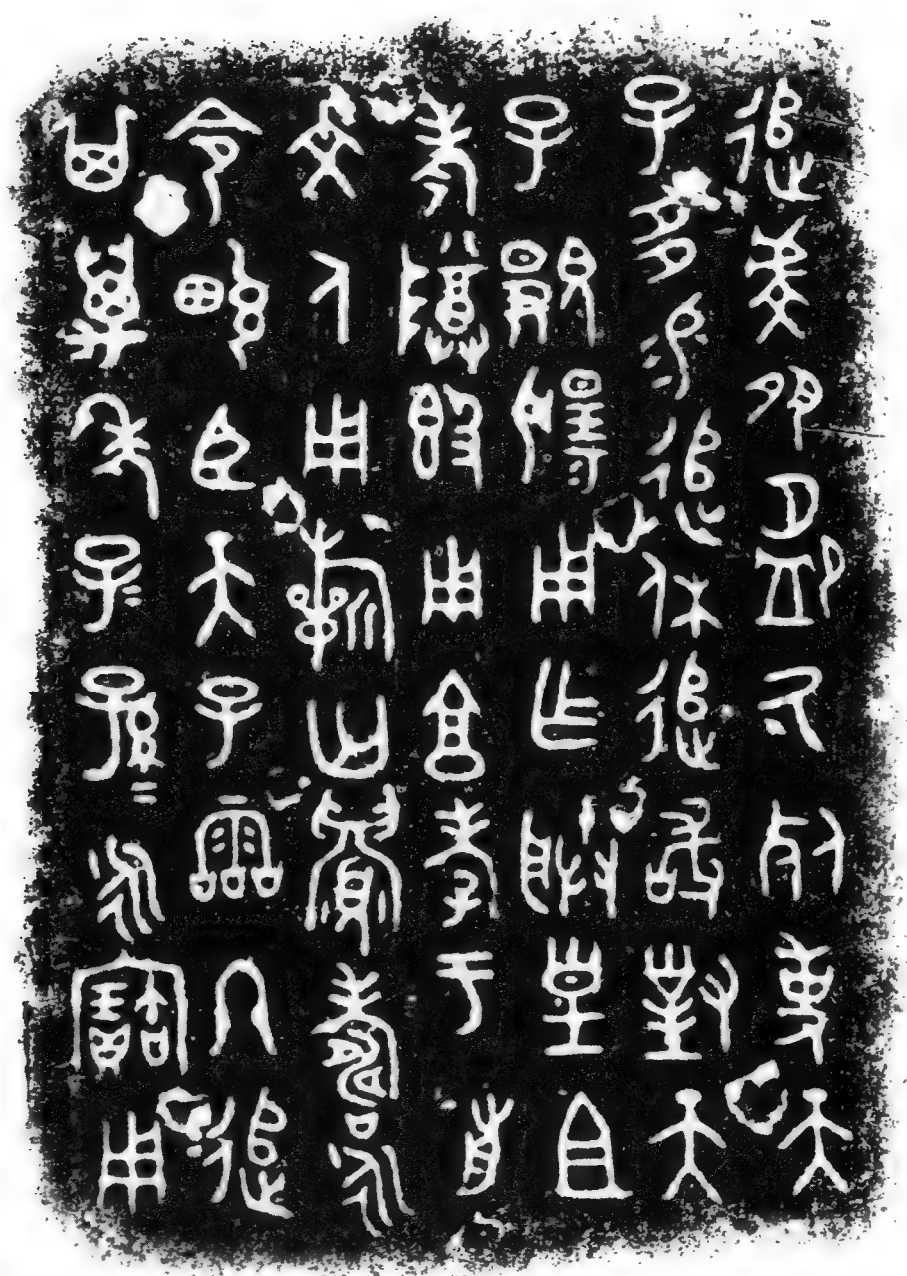 追虔夙夕卹氒死事天
子多易追休追敢對天
子覭揚用乍朕皇且
考尊簋用亯孝于前
文人用旂匄眉壽永
令畯臣天子霝冬追
其萬年子=孫=永寶用